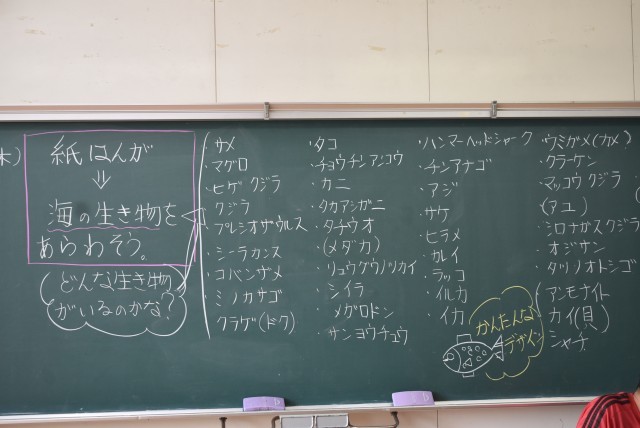 木)
紙はんが
⇓
海の生き物を
あらわそう。
どんな生き物
がいるのかな?
・サメ
・マグロ
・ヒゲクジラ
・クジラ
・プレシオザウルス
・シーラカンス
・コバンザメ
・ミノカサゴ
クラゲ(ドク)
・タコ
・チョウチンアンコウ
・カニ
・タカアシガニ
・タチウオ
(メダカ)
・リュウグウノツカイ
・シイラ
・メグロドン
・サンヨウチュウ
・ハンマーヘッドシャーク
・チンアナゴ
・アジ
・サケ
・ヒラメ
・カレイ
・ラッコ
・イルカ
・イカ
・ウミガメ(カメ)
・クラーケン
・マッコウクジラ
(アユ)
・シロナガスクジラ
・オジサン
・タツノオトシゴ
アンモナイト
カイ(貝)
シャチ
かんたんな
デザイン